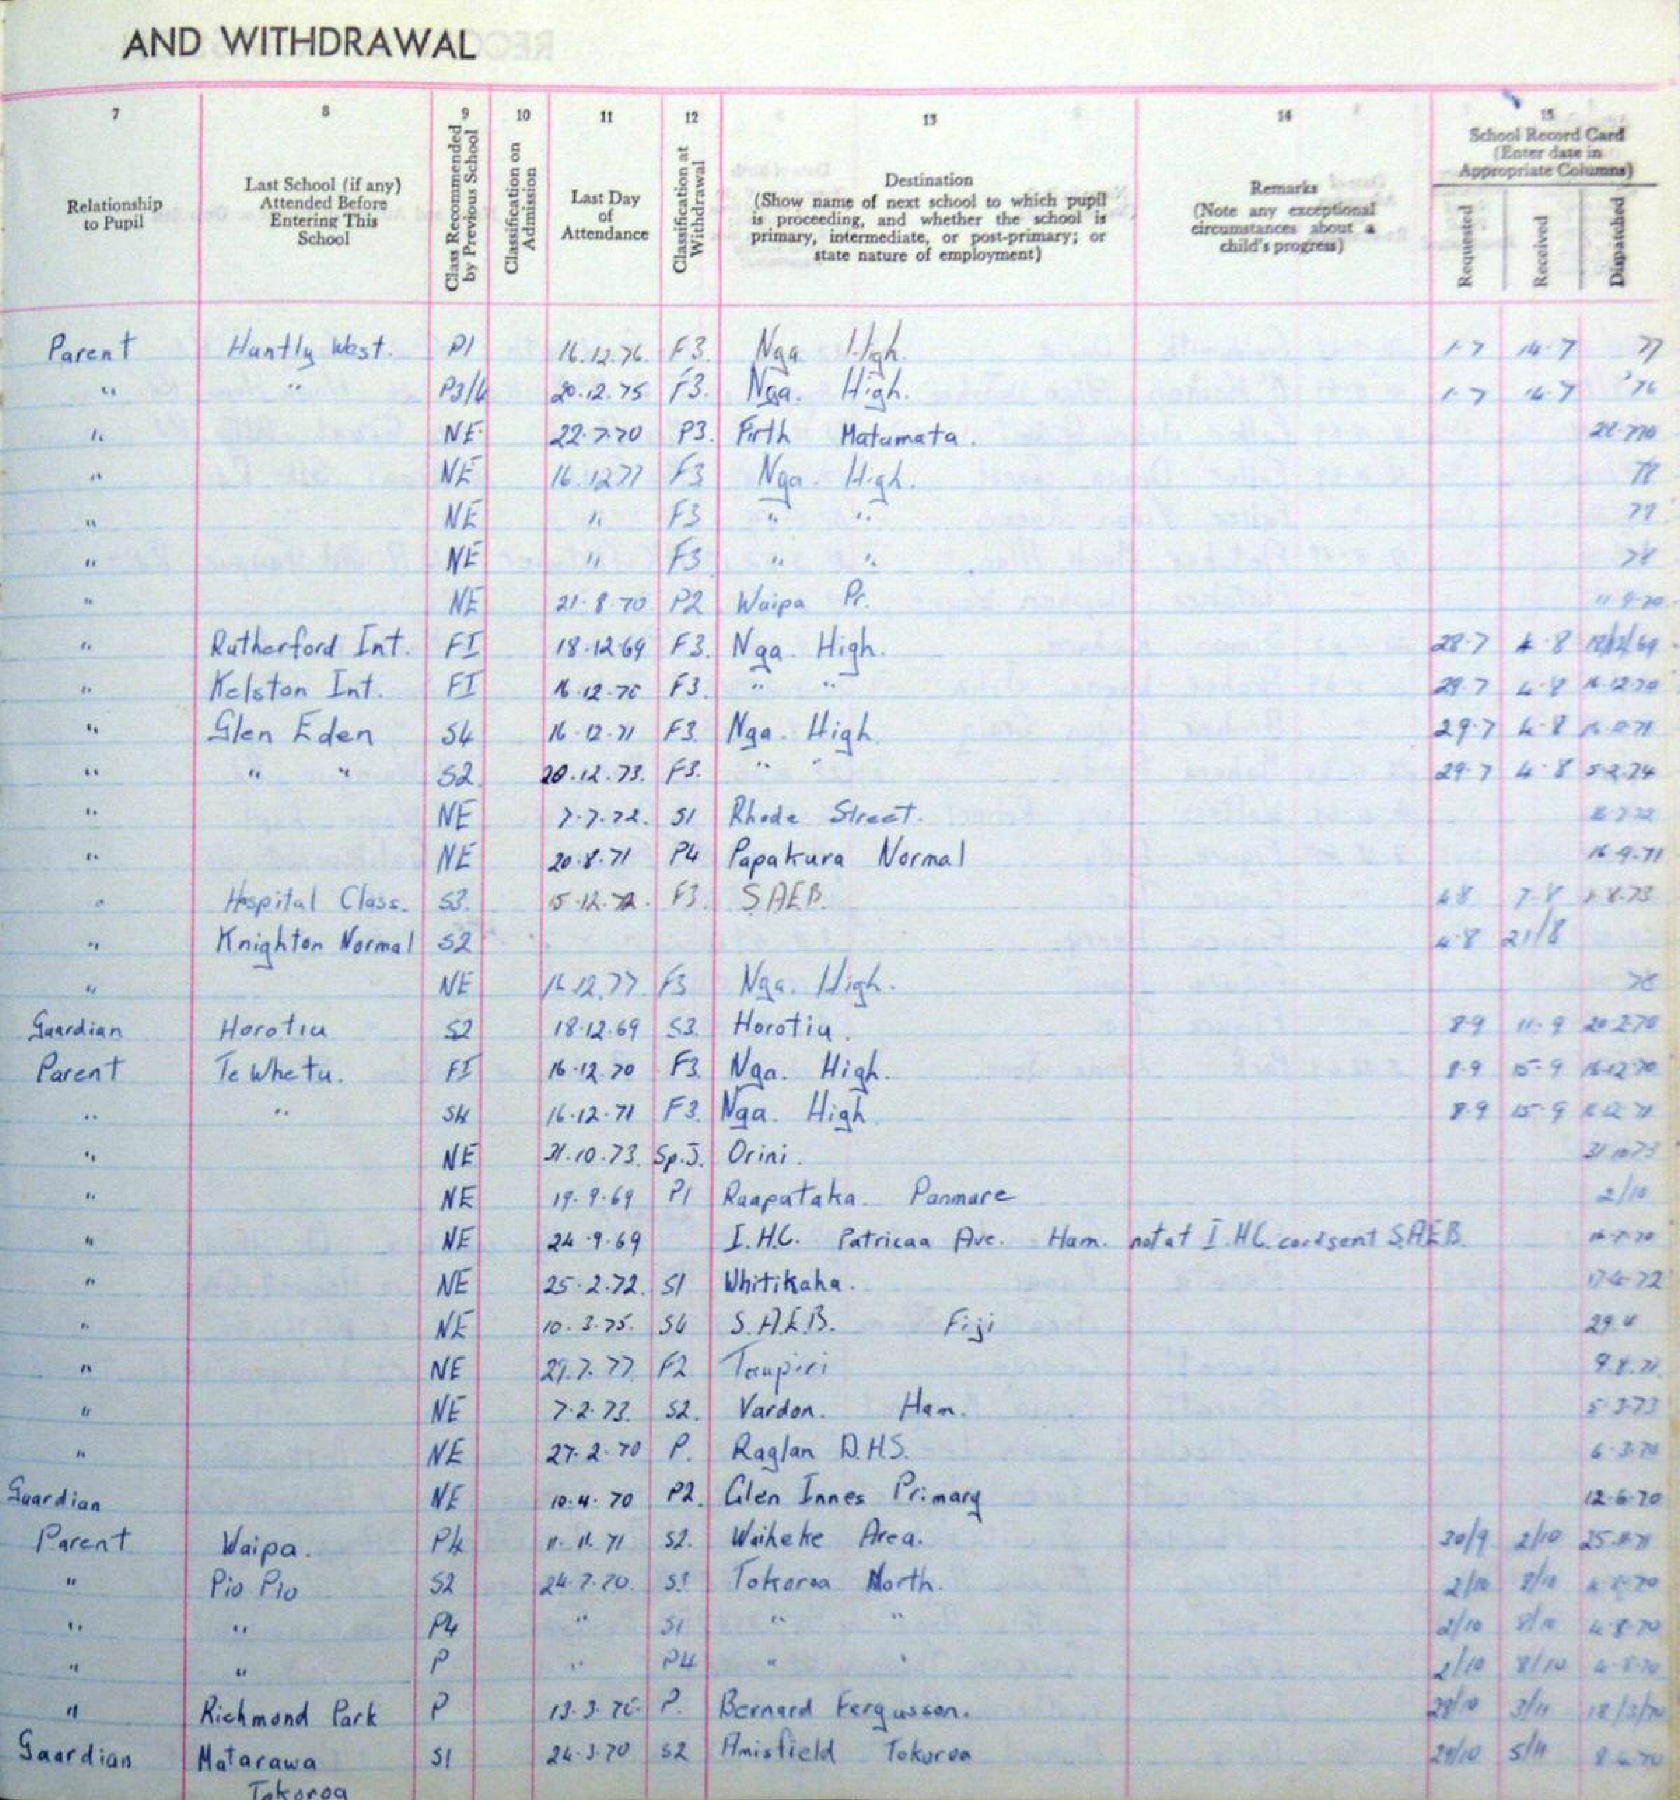 AND WITHDRAWAL
7 8 9 10 11 12 13 14 15
Relationship to Pupil
Last School (if any) Attended Before Entering This School
Class Recommended by Previous School
Classification on Admission
Last Day of Attendance
Classification at Withdrawal
Destination
(Show name of next school to which pupil is proceeding, and whether the school is primary, intermediate, or post-primary; or state nature of employment)
Remarks
(Note any exceptional circumstances about a child's progress)
School Record Card
(Enter date in Appropriate Columns)
Requested Received Dispatched
Parent Huntly West. P1 16.12.76. F3. Nga High. 1-7 14-7 77
" " P3/4 20.12.75 F3. Nga. High. 1-7 14-7 '76
" NE 22.7.70 P3. Firth Matamata.
" NE 16.12.77 F3 Nga. High. 78
" NE " F3 " " 77
" NE " F3 " " 78
" NE 21.8.70 P2 Waipa Pr.
" Rutherford Int. FI 18.12.69 F3. Nga. High. 28.7 4.8 18/12/69
" Kelston Int. FI 16.12.70 F3. " " 29.7 4.8 16.12.70
" Glen Eden S4 16.12.71 F3. Nga. High 29.7 4.8
" " " S2. 20.12.73. F3. " " 29.7 4.8 5.2.74
" NE 7.7.72. S1 Rhode Street.
" NE 20.8.71 P4 Papakura Normal 16.9.71
" Hospital Class. S3. 15.12.72. F3. SAEB. 4.8 7.8
" Knighton Normal S2 4.8 21/8
" NE 16.12.77. F3 Nga. High. 78
Guardian Horotiu S2 18.12.69 S3. Horotiu. 8.9 11.9 20.2.70
Parent Te Whetu. FI 16.12.70 F3. Nga. High. 8.9 15.9 16.12.70
" " S4 16.12.71 F3. Nga. High 8.9 15.9 16.12.71
" NE 31.10.73. Sp.J. Orini. 31.10.73
" NE 19.9.69 P1 Ruapotaka Panmure 2/10
" NE 24.9.69 I.H.C. Patricaa Ave. Ham. not at I.H.C. card sent S.A.E.B.
" NE 25.2.72. S1 Whitikaha. 17.4.72
" NE 10.3.75. S4 S.A.E.B. Fiji 29.4
" NE 29.7.77. F2 Taupiri
" NE 7.2.73. S2. Vardon. Ham. 5.3.73
" NE 27.2.70 P. Raglan D.H.S. 6.3.70
Guardian NE 10.4.70 P2. Glen Innes Primary 12.6.70
Parent Waipa. P4 11.11.71 S2. Waiheke Area. 30/9 2/10 25.11.71
" Pio Pio S2 24.7.70. S3 Tokoroa North. 2/10 8/10 4.8.70
" " P4 " S1 " " 2/10 8/10 4.8.70
" " P " P4 " " 2/10 8/10 4.8.70
" Richmond Park P 13.3.70. P. Bernard Fergusson. 29/10 3/11 18/3/70
Guardian Matarawa S1 24.3.70 S2 Amisfield Tokoroa 29/10 5/11 8.4.70
Tokoroa